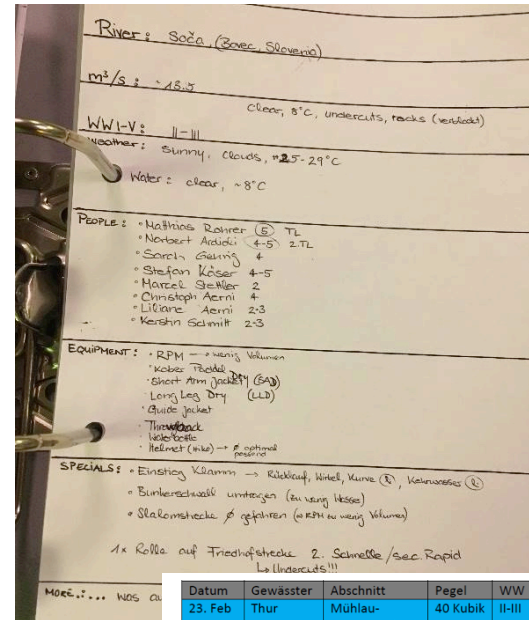 River: Soča, (Bovec, Slovenia)
m³/s: ~13.5
Clear, 8°C, undercuts, rocks (verblockt)
WW I-V: II-III
Weather: Sunny, Clouds, ~25-29°C
Water: clear, ~8°C
PEOPLE: • Matthias Rohrer (5) TL
• Norbert 4-5 2.TL
• Sarah Gehrig 4
• Stefan Käser 4-5
• Marcel Stettler 2
• Christoph Aerni 4
• Liliane Aerni 2-3
• Kerstin Schmitt 2-3
EQUIPMENT: • RPM → wenig Volumen
• Kober Paddel
• Short Arm Jacket Dry (SAD)
• Long Leg Dry (LLD)
• Guide Jacket
• Throwback
• Waterbottle
• Helmet (Hiko) → Ø optimal
passend
SPECIALS: • Einstieg Klamm → Rücklauf, Wirbel, Kurve, Kehrwasser
• Bunkerschwall umtragen (zu wenig Wasser)
• Slalomstrecke Ø gefahren (RPM zu wenig Volumen)
1x Rolle auf Friedhofstrecke 2. Schnelle/sec. Rapid
↳ Undercuts!!!
MORE:... was
Datum Gewässer Abschnitt Pegel WW
23. Feb Thur Mühlau- 40 Kubik II-III